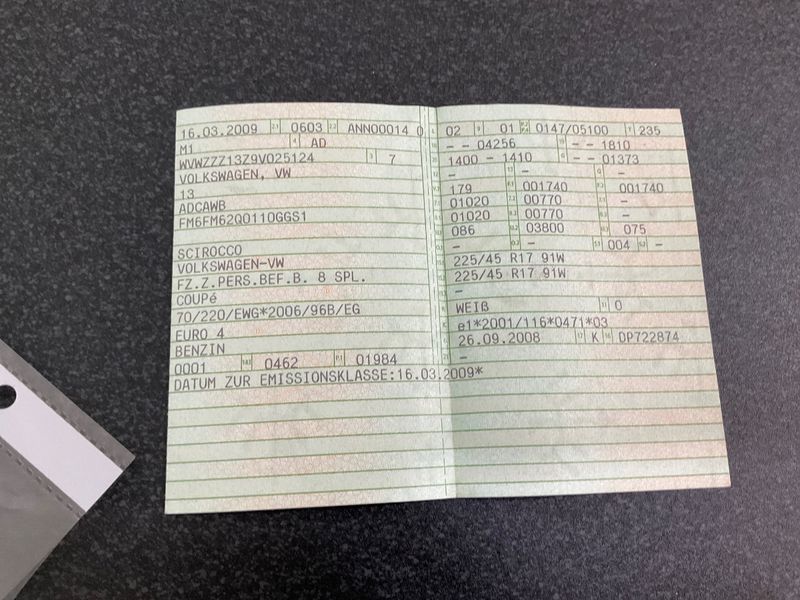 16.03.2009 0603 ANN00014 0
M1 AD
WVWZZZ13Z9V025124 7
VOLKSWAGEN, VW
13
ADCAWB
FM6FM62Q0110GGS1
SCIROCCO
VOLKSWAGEN-VW
FZ.Z.PERS.BEF.B. 8 SPL.
COUPé
70/220/EWG*2006/96B/EG
EURO 4
BENZIN
0001 0462 01984
DATUM ZUR EMISSIONSKLASSE:16.03.2009*
02 01 0147/05100 235
- - 04256 - - 1810
1400 - 1410 - - 01373
- - -
179 001740 001740
01020 00770 -
01020 00770 -
086 03800 075
- - 004 -
225/45 R17 91W
225/45 R17 91W
-
WEIß 0
e1*2001/116*0471*03
26.09.2008 K DP722874
-